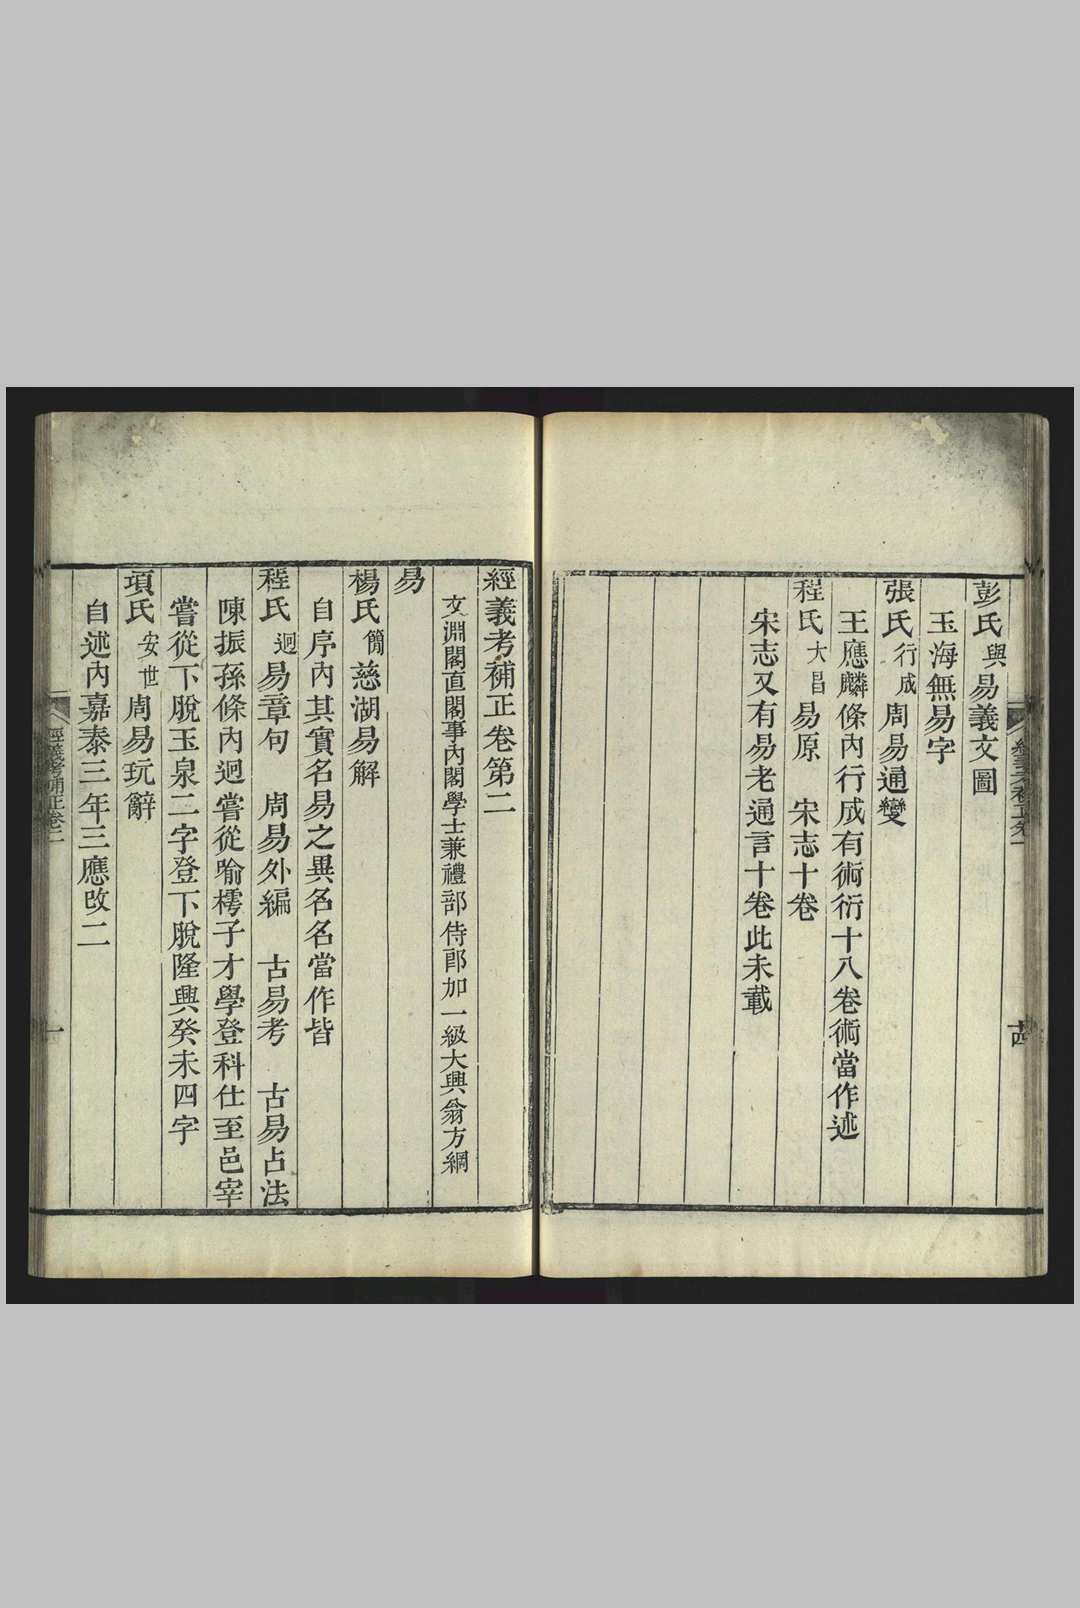 彭氏與易義文圖
玉海無易字
張氏行成周易通變
王應麟條內行成有術衍十八卷術當作述
程氏大昌易原 宋志十卷
宋志又有易老通言十卷此未載
經義考補正卷第二
文淵閣直閣事內閣學士兼禮部侍郎加一級大興翁方綱
易
楊氏簡慈湖易解
自序內其實名易之異名名當作皆
程氏迥易章句 周易外編 古易考 古易占法
陳振孫條內迥嘗從喻樗子才學登科仕至邑宰
嘗從下脫玉泉二字登下脫隆興癸未四字
項氏安世周易玩辭
自述內嘉泰三年三應改二
經義考補正卷二
一